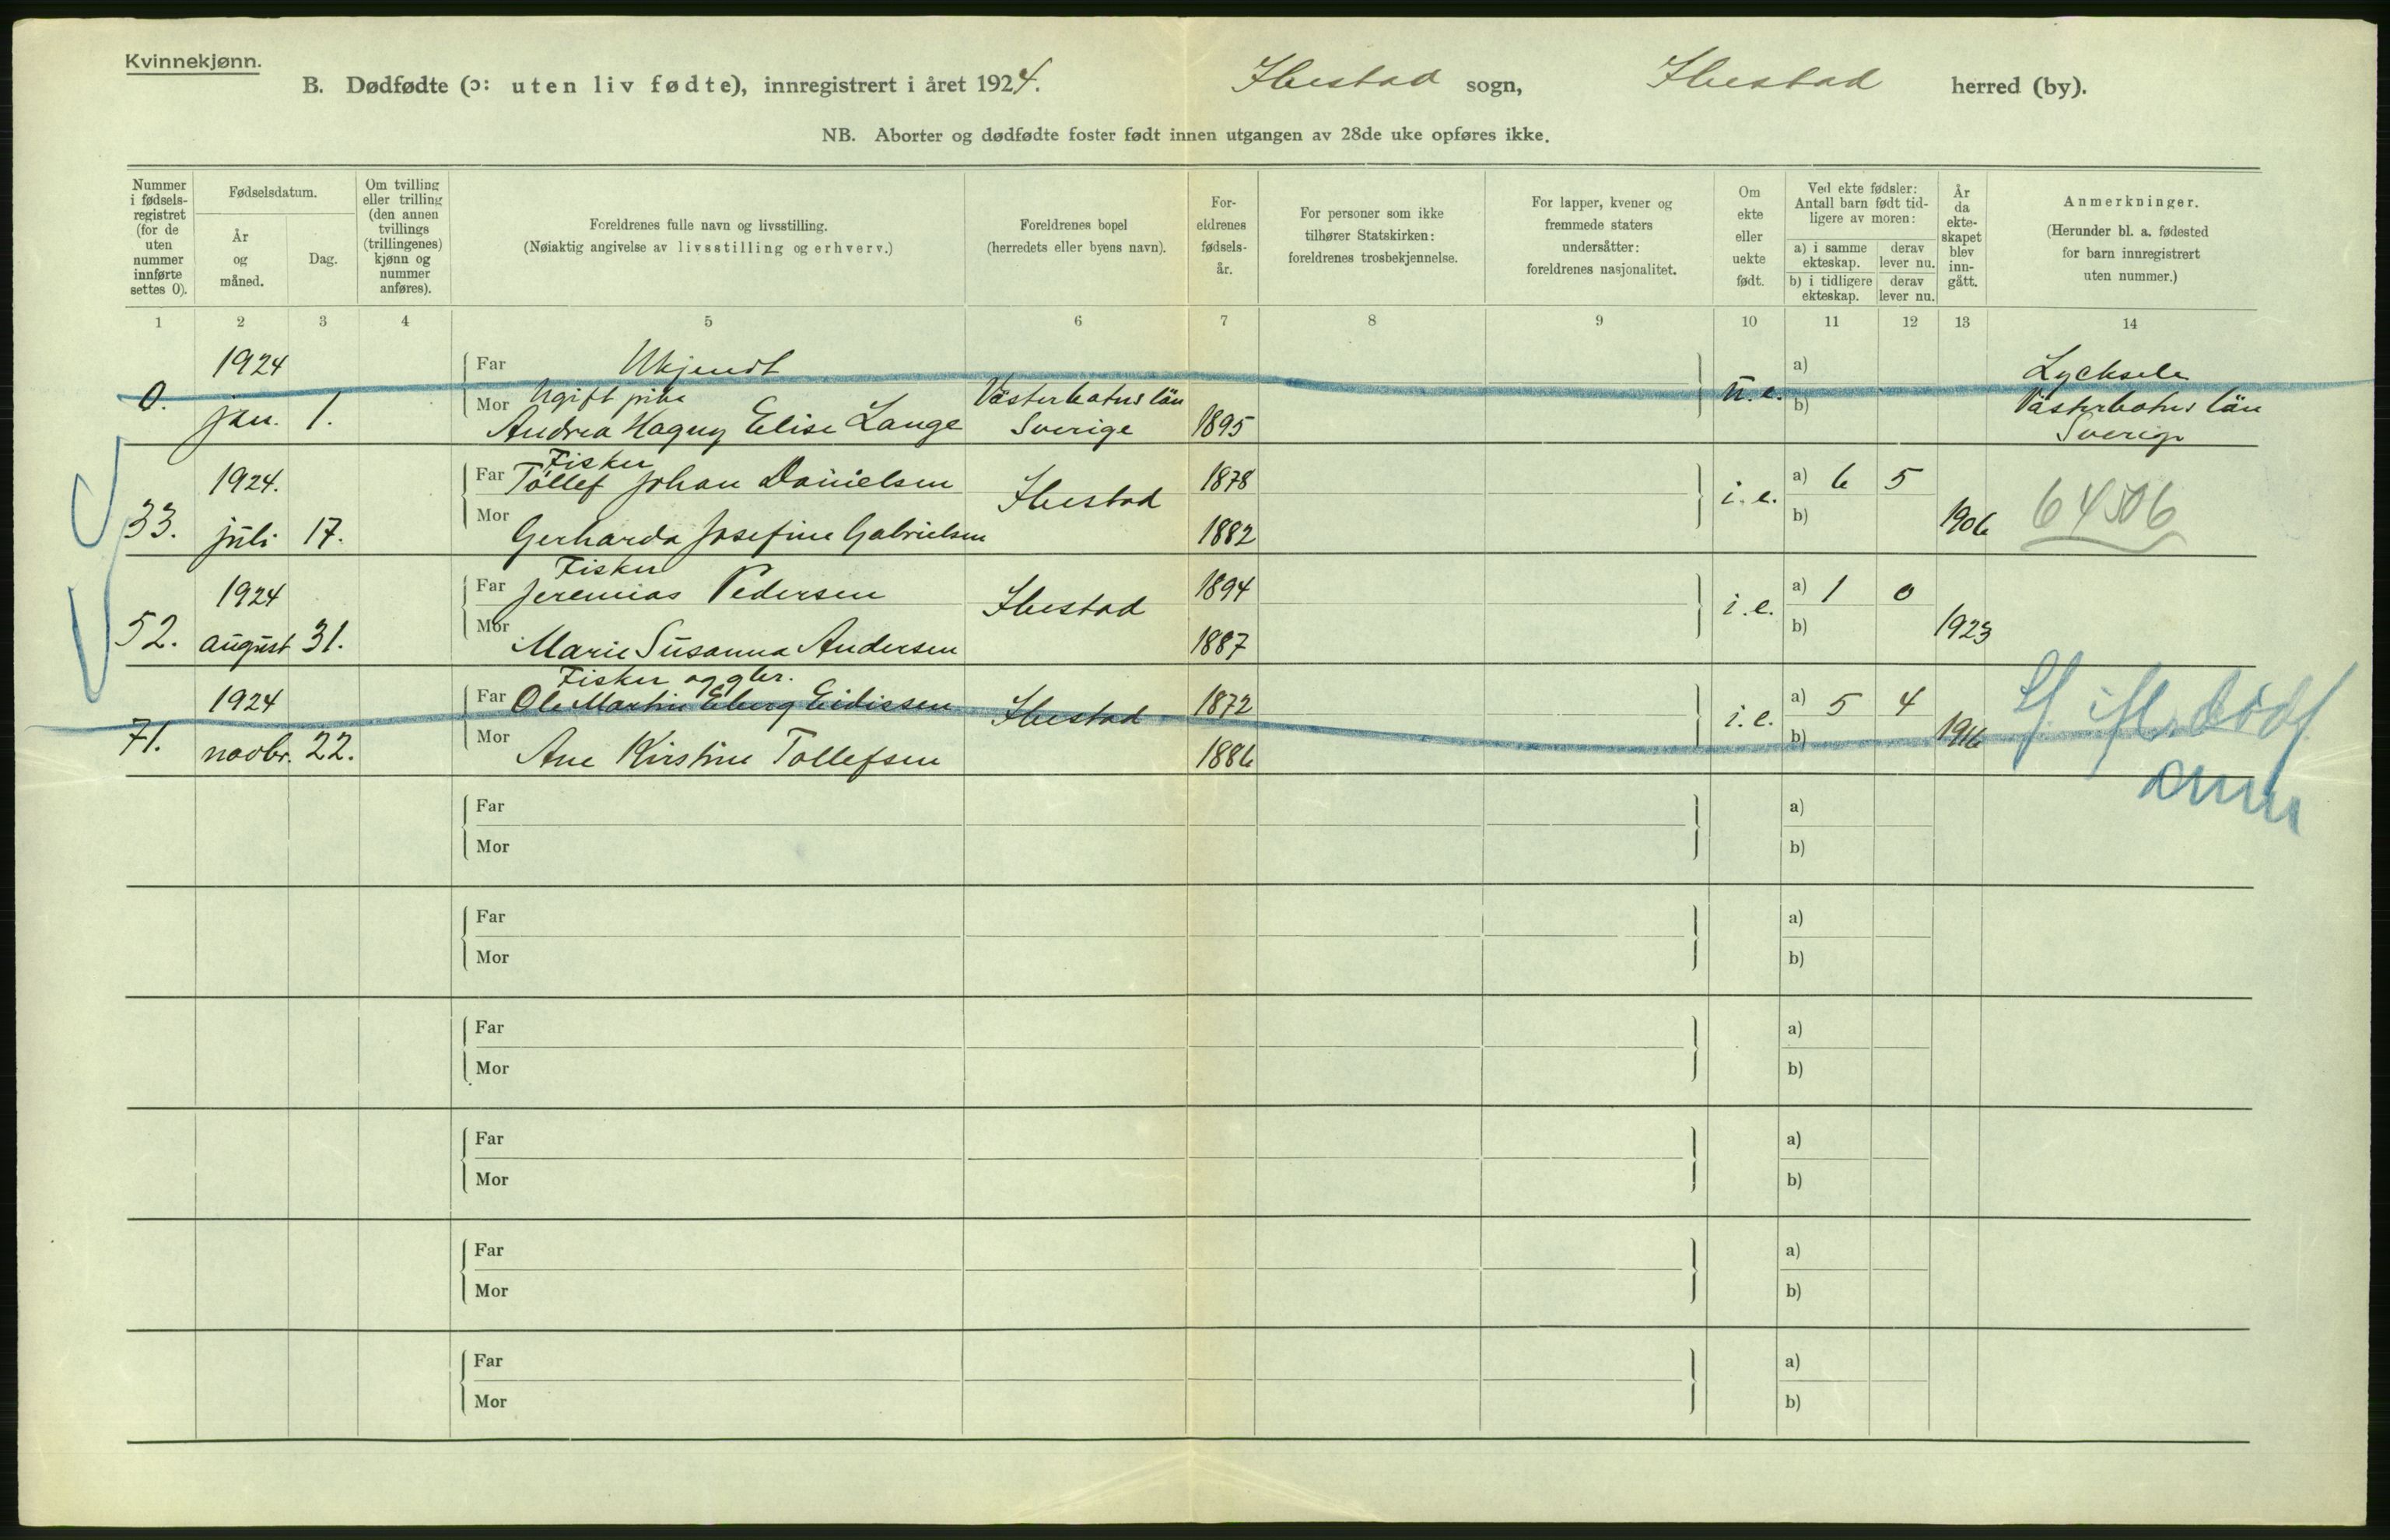 Kvinnekjønn.
B. Dødfødte (ɔ: uten liv fødte), innregistrert i året 1924. Ibestad sogn, Ibestad herred (by).
NB. Aborter og dødfødte foster født innen utgangen av 28de uke opføres ikke.
Nummer
i fødsels-
registret
(for de
uten
nummer
innførte
settes 0).
Fødselsdatum.
År
og
måned.
Dag.
Om tvilling
eller trilling
(den annen
tvillings
(trillingenes)
kjønn og
nummer
anføres).
Foreldrenes fulle navn og livsstilling.
(Nøiaktig angivelse av livsstilling og erhverv.)
Foreldrenes bopel
(herredets eller byens navn).
For-
eldrenes
fødsels-
år.
For personer som ikke
tilhører Statskirken:
foreldrenes trosbekjennelse.
For lapper, kvener og
fremmede staters
undersåtter:
foreldrenes nasjonalitet.
Om
ekte
eller
uekte
født.
Ved ekte fødsler:
Antall barn født tid-
ligere av moren:
a) i samme
ekteskap.
derav
lever nu.
b) i tidligere
ekteskap.
derav
lever nu.
År
da
ekte-
skapet
blev
inn-
gått.
Anmerkninger.
(Herunder bl. a. fødested
for barn innregistrert
uten nummer.)
1 2 3 4 5 6 7 8 9 10 11 12 13 14
1924 Far Ukjendt a) Lycksele
0. Mor Ugift pike Västerbotns län u.e. b) Västerbotns län
jan. 1. Andrea Hagny Elise Lange Sverige 1895 Sverige
Fisker
1924. Far Tollef Johan Danielsen Ibestad 1878 i.e. a) 6 5 64506
33. juli 17. Mor Gerharda Josefine Gabrielsen 1882 b) 1906
Fisker
1924 Far Jeremias Pedersen Ibestad 1894 i.e. a) 1 0
52. august 31. Mor Marie Susanna Andersen 1887 b) 1923
Fisker og gbr.
1924 Far Ole Martin Eberg Eidissen Ibestad 1872 i.e. a) 5 4
71. novbr. 22. Mor Ane Kirstine Tollefsen 1886 b) 1916
Far a)
Mor b)
Far a)
Mor b)
Far a)
Mor b)
Far a)
Mor b)
Far a)
Mor b)
Far a)
Mor b)